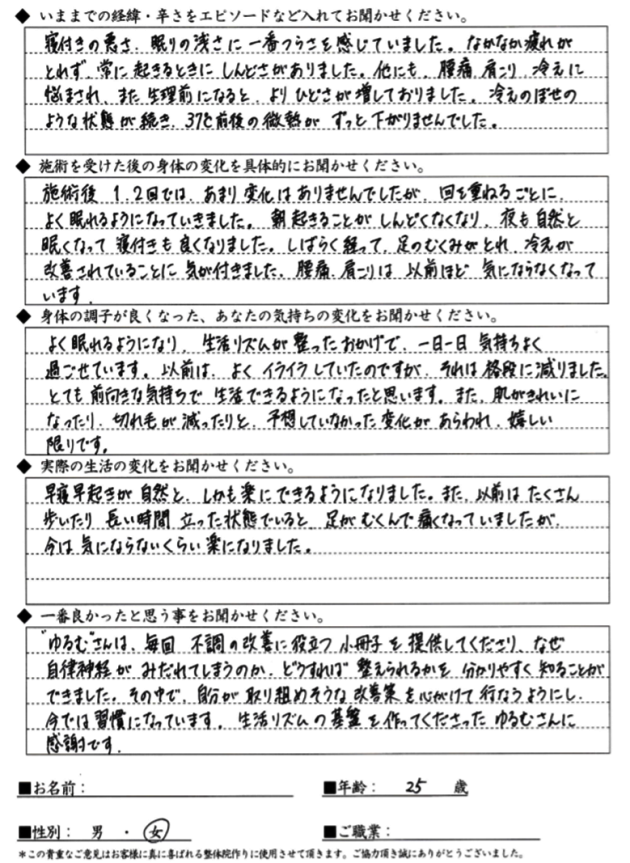 ◆ いままでの経緯・辛さをエピソードなど入れてお聞かせください。
寝付きの悪さ、眠りの浅さに一番つらさを感じていました。なかなか疲れが
とれず、常に起きるときにしんどさがありました。他にも、腰痛、肩こり、冷えに
悩まされ、また生理前になると、よりひどさが増しておりました。冷えのぼせの
ような状態が続き、37℃前後の微熱がずっと下がりませんでした。
◆ 施術を受けた後の身体の変化を具体的にお聞かせください。
施術後 1、2回では、あまり変化はありませんでしたが、回を重ねるごとに、
よく眠れるようになっていきました。朝起きることがしんどくなくなり、夜も自然と
眠くなって寝付きも良くなりました。しばらく経って、足のむくみがとれ、冷えが
改善されていることに気が付きました。腰痛、肩こりは以前ほど気にならなくなって
います。
◆ 身体の調子が良くなった、あなたの気持ちの変化をお聞かせください。
よく眠れるようになり、生活リズムが整ったおかげで、一日一日気持ちよく
過ごせています。以前は、よくイライラしていたのですが、それは格段に減りました。
とても前向きな気持ちで生活できるようになったと思います。また、肌がきれいに
なったり、切れ毛が減ったりと、予想していなかった変化があらわれ、嬉しい
限りです。
◆ 実際の生活の変化をお聞かせください。
早寝早起きが自然と、しかも楽にできるようになりました。また、以前はたくさん
歩いたり長い時間立った状態でいると、足がむくんで痛くなっていましたが、
今は気にならないくらい楽になりました。
◆ 一番良かったと思う事をお聞かせください。
"ゆるむ"さんは、毎回不調の改善に役立つ小冊子を提供してくださり、なぜ
自律神経がみだれてしまうのか、どうすれば整えられるかを分かりやすく知ることが
できました。その中で、自分が取り組めそうな改善策を心がけて行なうようにし、
今では習慣になっています。生活リズムの基盤を作ってくださったゆるむさんに
感謝です。
■お名前： ■年齢： 25 歳
■性別： 男 ・ 女 ■ご職業：
＊この貴重なご意見はお客様に真に喜ばれる整体院作りに使用させて頂きます。ご協力頂き誠にありがとうございました。